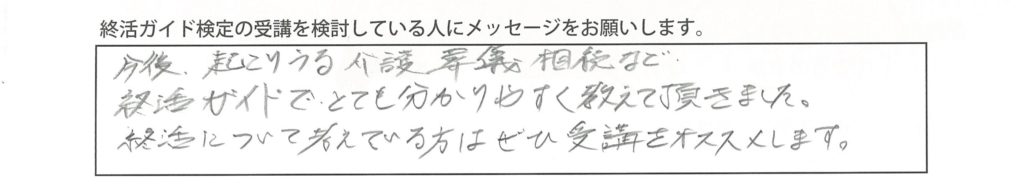 終活ガイド検定の受講を検討している人にメッセージをお願いします。
今後、起こりうる介護 葬儀 相続など
終活ガイドでとても分かりやすく教えて頂きました。
終活について考えている方はぜひ受講をオススメします。